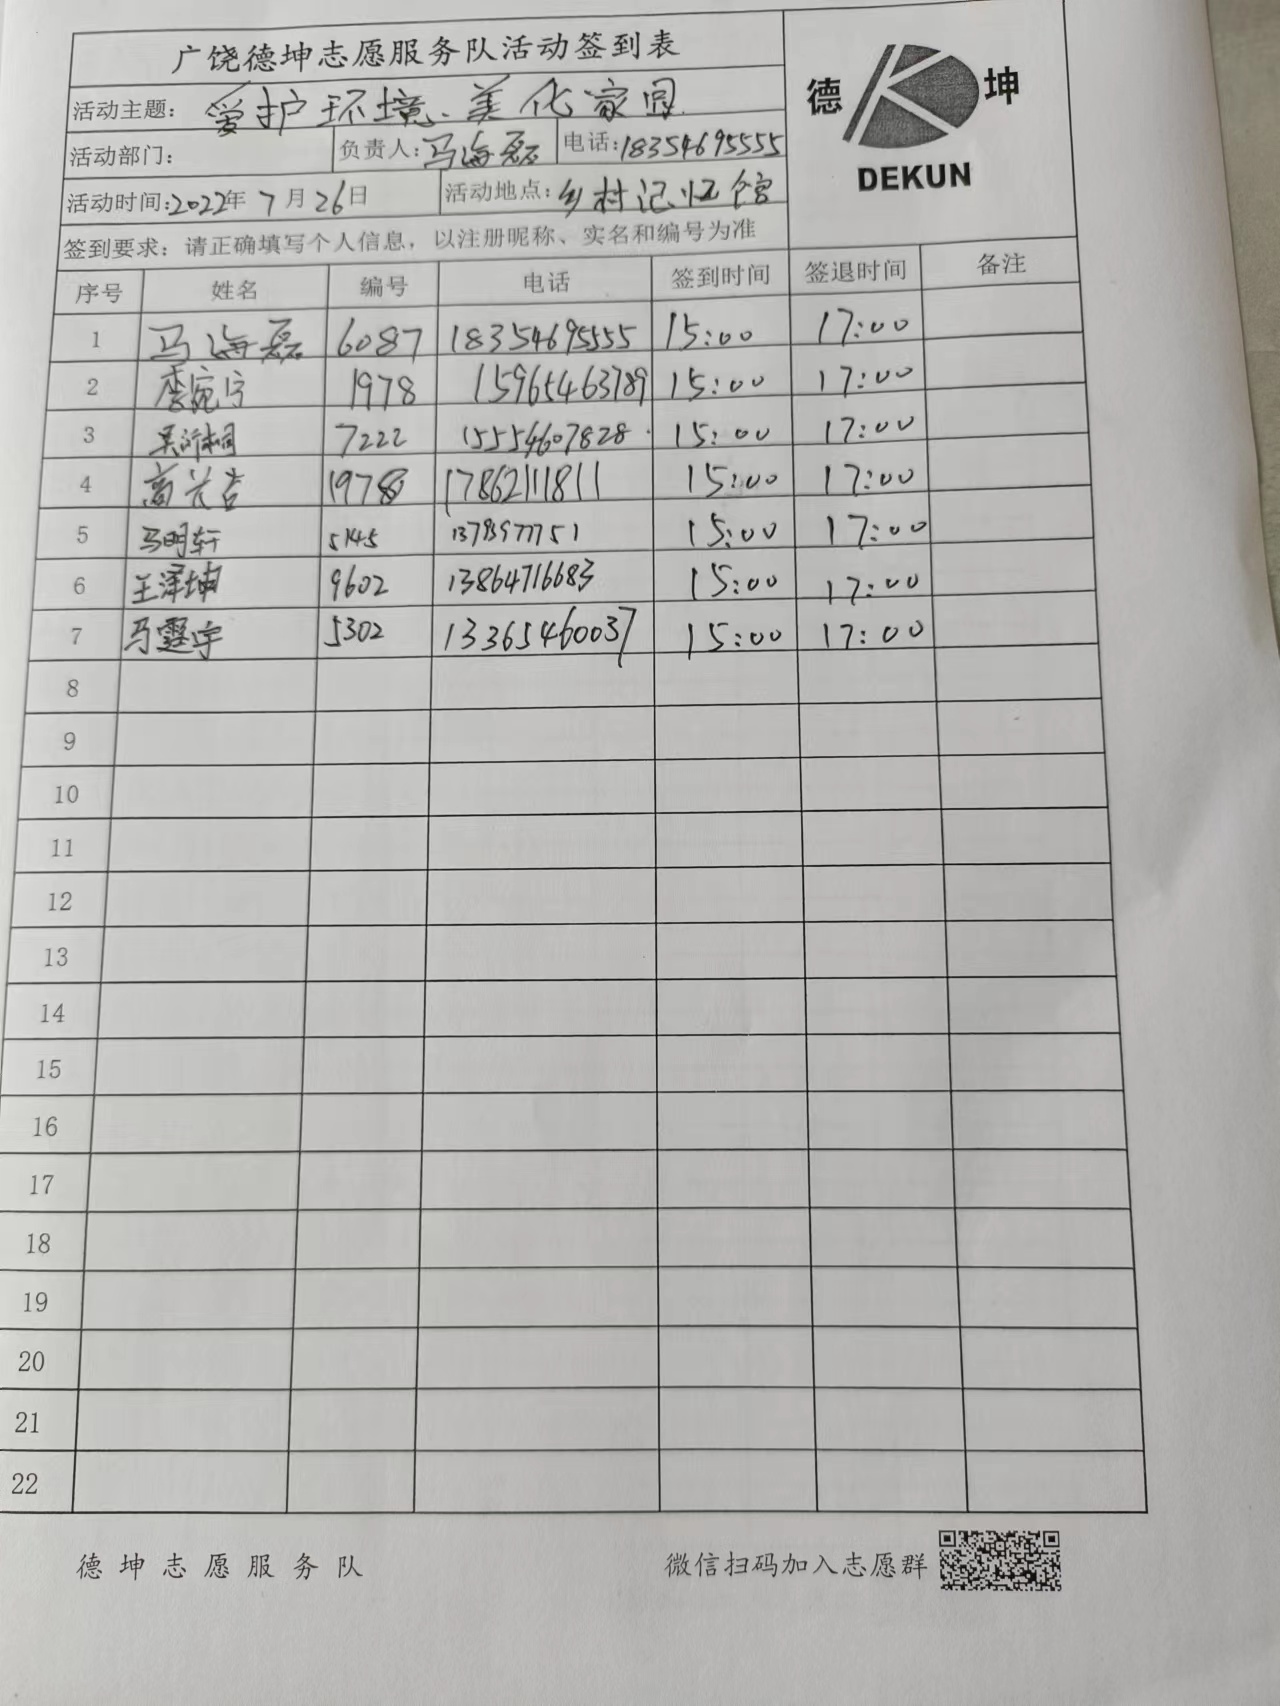 广饶德坤志愿服务队活动签到表
德 坤
DEKUN
活动主题：爱护环境、美化家园
活动部门： 负责人：马海磊 电话：18354695555
活动时间：2022年7月26日 活动地点：乡村记忆馆
签到要求：请正确填写个人信息，以注册昵称、实名和编号为准
序号 姓名 编号 电话 签到时间 签退时间 备注
1 马海磊 6087 18354695555 15:00 17:00
2 李宛宁 1978 15965463789 15:00 17:00
3 7222 15554607828 15:00 17:00
4 高长吉 19788 17862111811 15:00 17:00
5 马明轩 5145 15:00 17:00
6 王泽坤 9602 13864716683 15:00 17:00
7 马霆宇 5302 13365460037 15:00 17:00
8
9
10
11
12
13
14
15
16
17
18
19
20
21
22
德坤志愿服务队 微信扫码加入志愿群